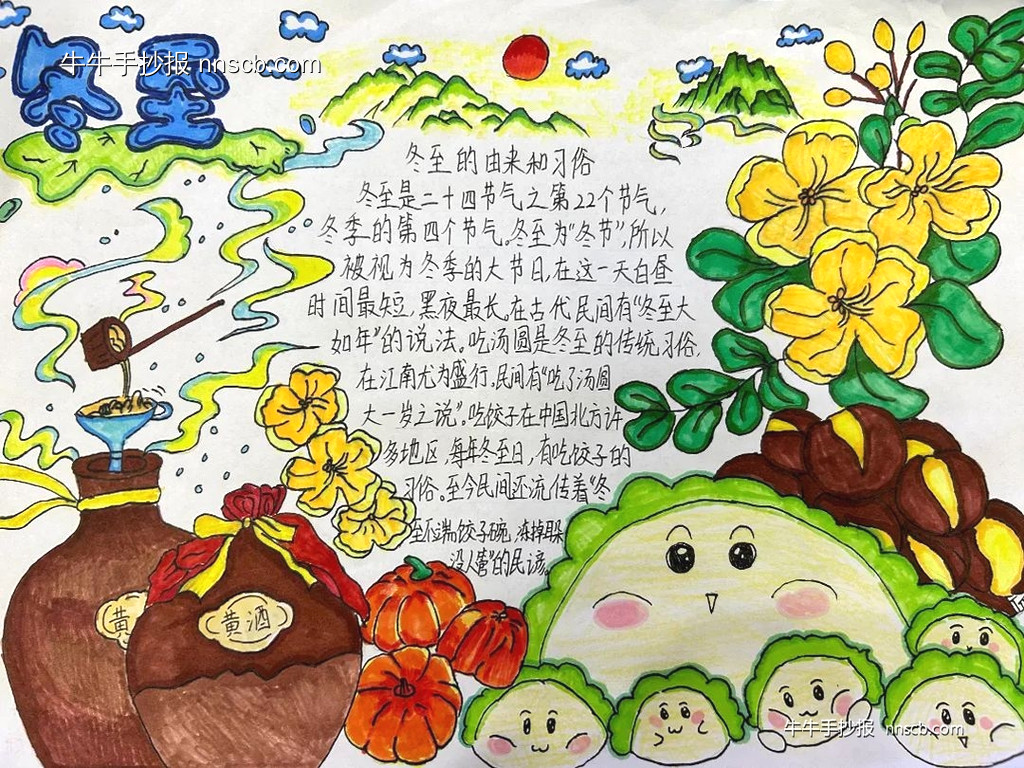 冬至
牛牛手抄报 nnscb.com
冬至的由来和习俗
冬至是二十四节气之第22个节气,
冬季的第四个节气。冬至为“冬节”,所以
被视为冬季的大节日,在这一天白昼
时间最短,黑夜最长。在古代民间有“冬至大
如年”的说法。吃汤圆是冬至的传统习俗,
在江南尤为盛行。民间有“吃了汤圆
大一岁之说”。吃饺子在中国北方许
多地区,每年冬至日,有吃饺子的
习俗。至今民间还流传着“冬
至不端饺子碗,冻掉耳朵
没人管”的民谚。
黄
黄酒
牛牛手抄报 nnscb.com